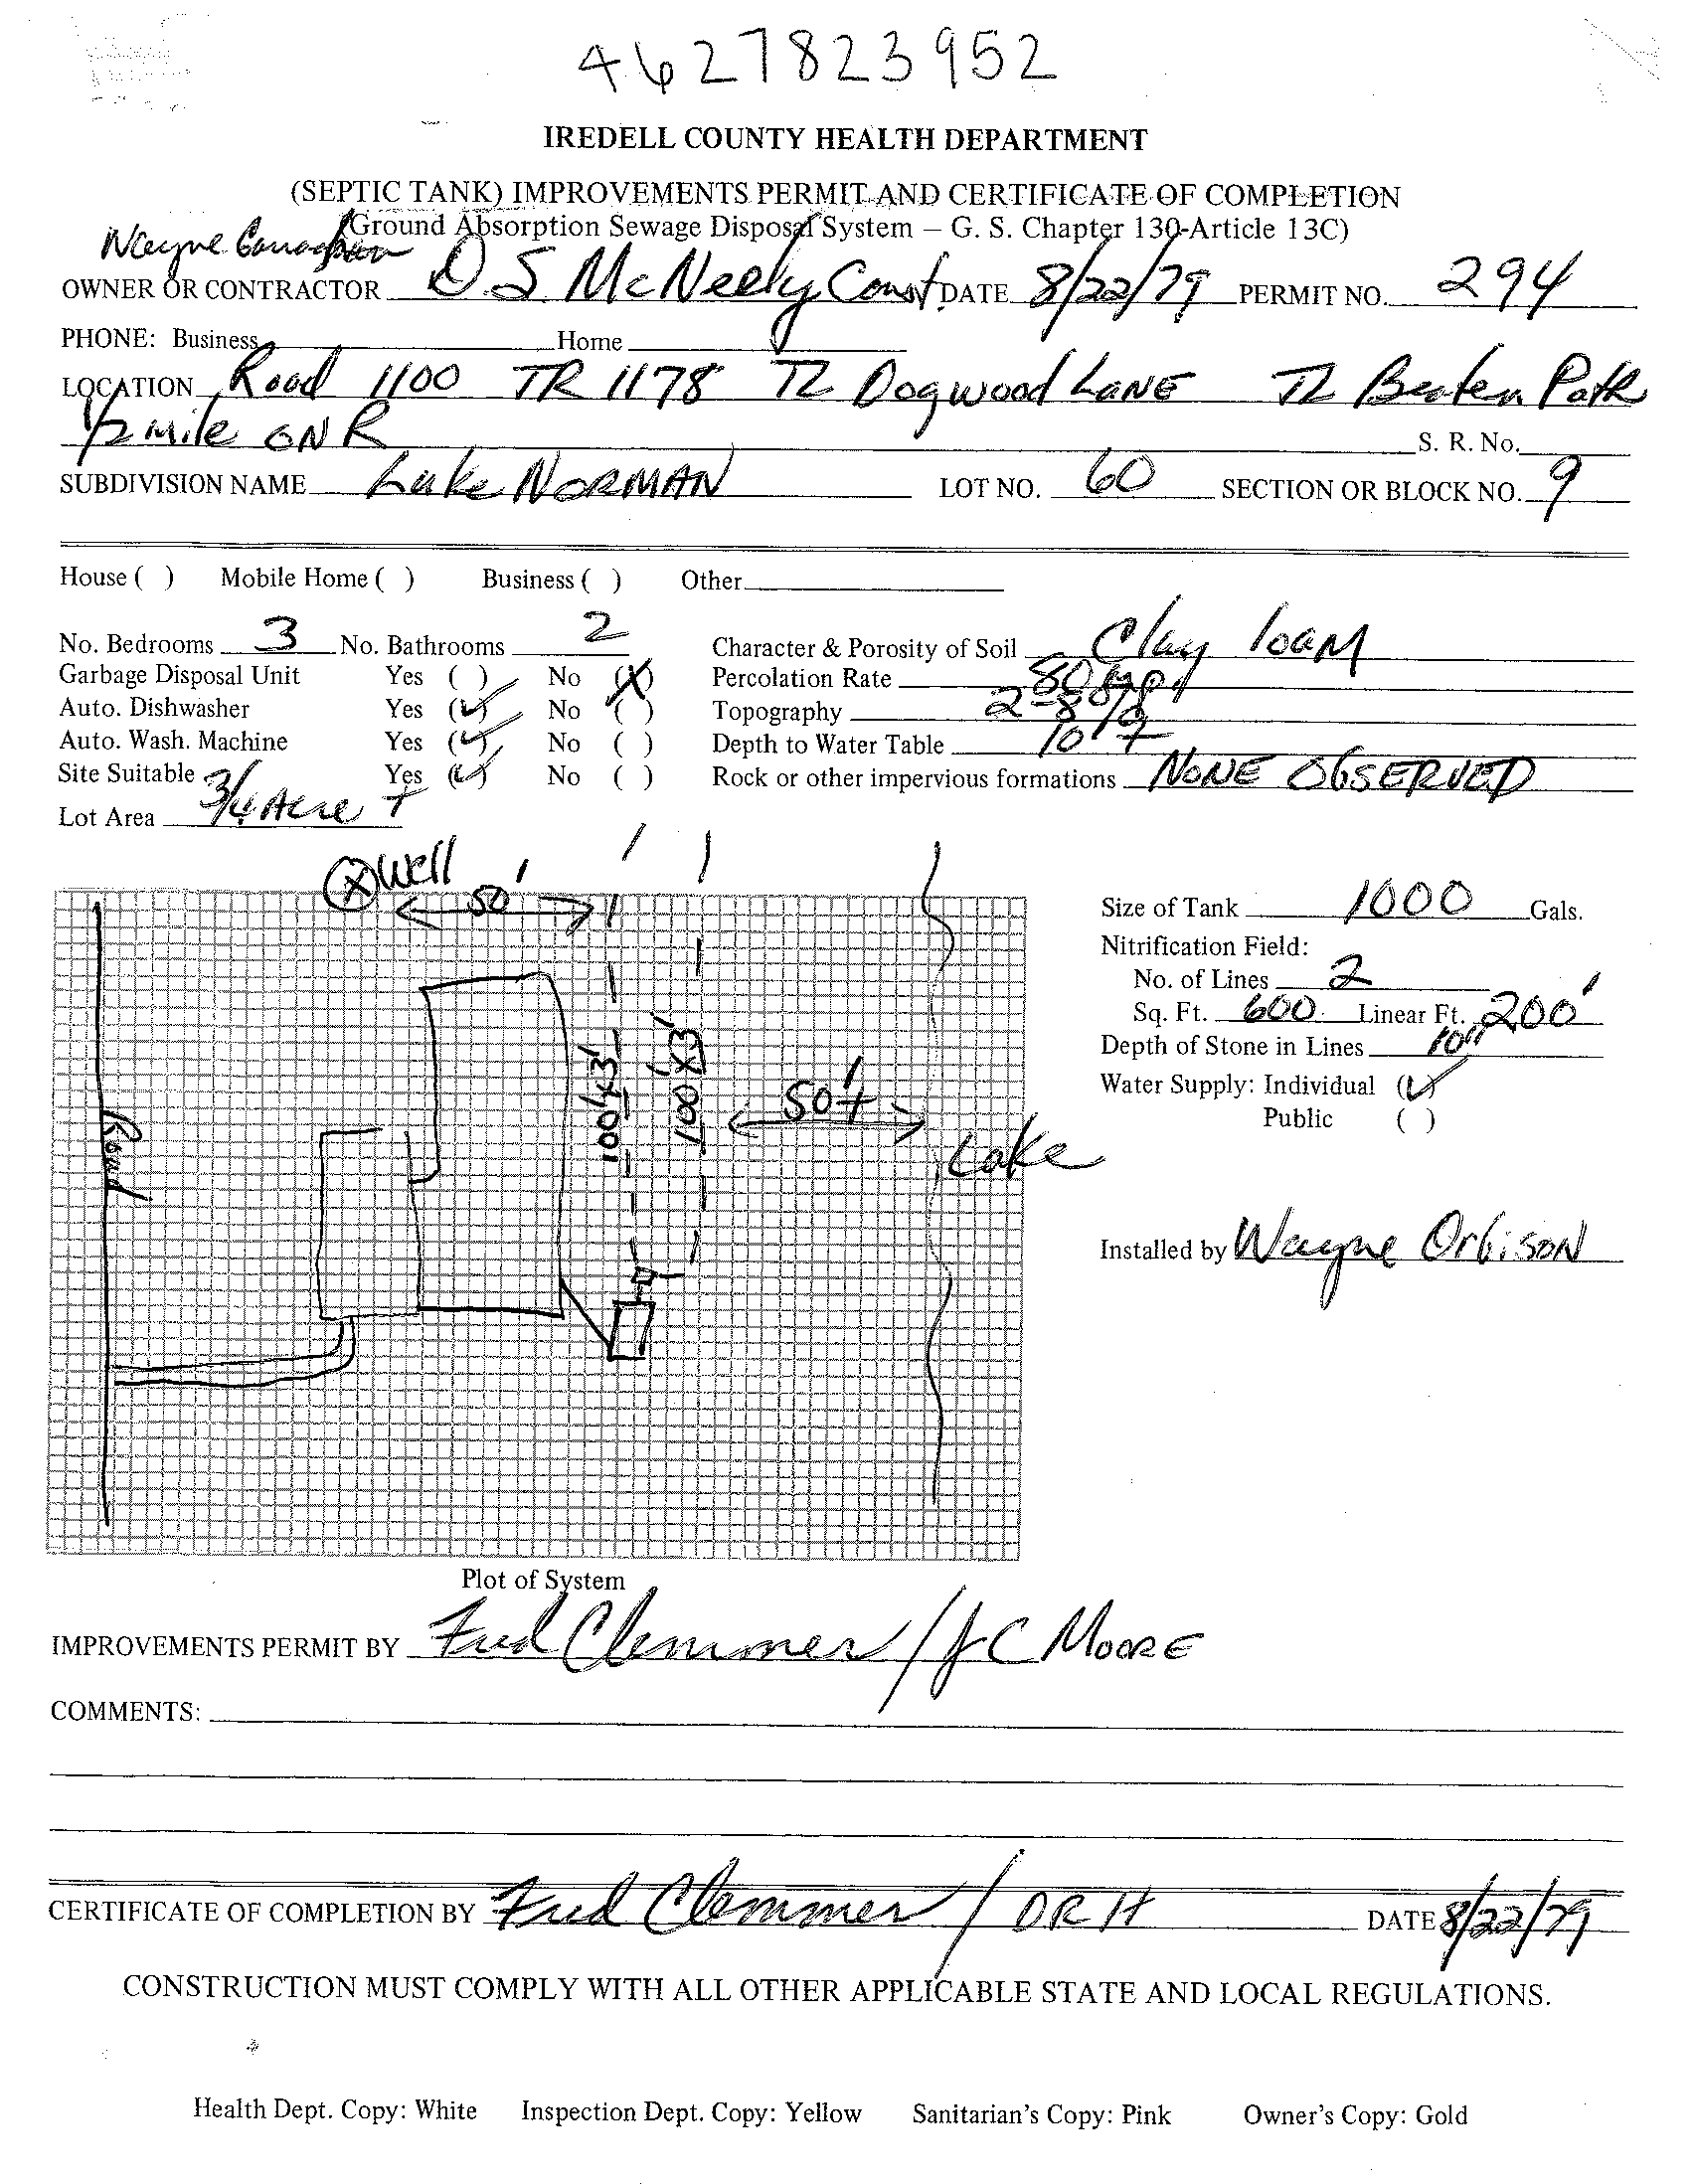 4627823952
IREDELL COUNTY HEALTH DEPARTMENT
(SEPTIC TANK) IMPROVEMENTS PERMIT AND CERTIFICATE OF COMPLETION
(Ground Absorption Sewage Disposal System – G. S. Chapter 130-Article 13C)
Wayne
OWNER OR CONTRACTOR D.S. McNeely Const. DATE 8/22/79 PERMIT NO. 294
PHONE: Business Home
LOCATION Road 1100 TR 1178 TL Dogwood LANE TL Beaten Path
1/2 mile ON R S. R. No.
SUBDIVISION NAME Lake NORMAN LOT NO. 60 SECTION OR BLOCK NO. 9
House ( ) Mobile Home ( ) Business ( ) Other
No. Bedrooms 3 No. Bathrooms 2 Character & Porosity of Soil Clay loam
Garbage Disposal Unit Yes ( ) No (X) Percolation Rate 80
Auto. Dishwasher Yes (✓) No ( ) Topography 2-8%
Auto. Wash. Machine Yes (✓) No ( ) Depth to Water Table 10'+
Site Suitable Yes (✓) No ( ) Rock or other impervious formations NONE OBSERVED
Lot Area 3/4 Acre +
Well
50'
Size of Tank 1000 Gals.
Nitrification Field:
No. of Lines 2
Sq. Ft. 600 Linear Ft. 200'
Depth of Stone in Lines 10"
Water Supply: Individual (✓)
Public ( )
100'x3'
100'x3'
50'+
Road
Lake
Installed by Wayne Orbison
Plot of System
IMPROVEMENTS PERMIT BY Fred Clemmer / JC MOORE
COMMENTS:
CERTIFICATE OF COMPLETION BY Fred Clemmer / DRH DATE 8/22/79
CONSTRUCTION MUST COMPLY WITH ALL OTHER APPLICABLE STATE AND LOCAL REGULATIONS.
Health Dept. Copy: White Inspection Dept. Copy: Yellow Sanitarian's Copy: Pink Owner's Copy: Gold